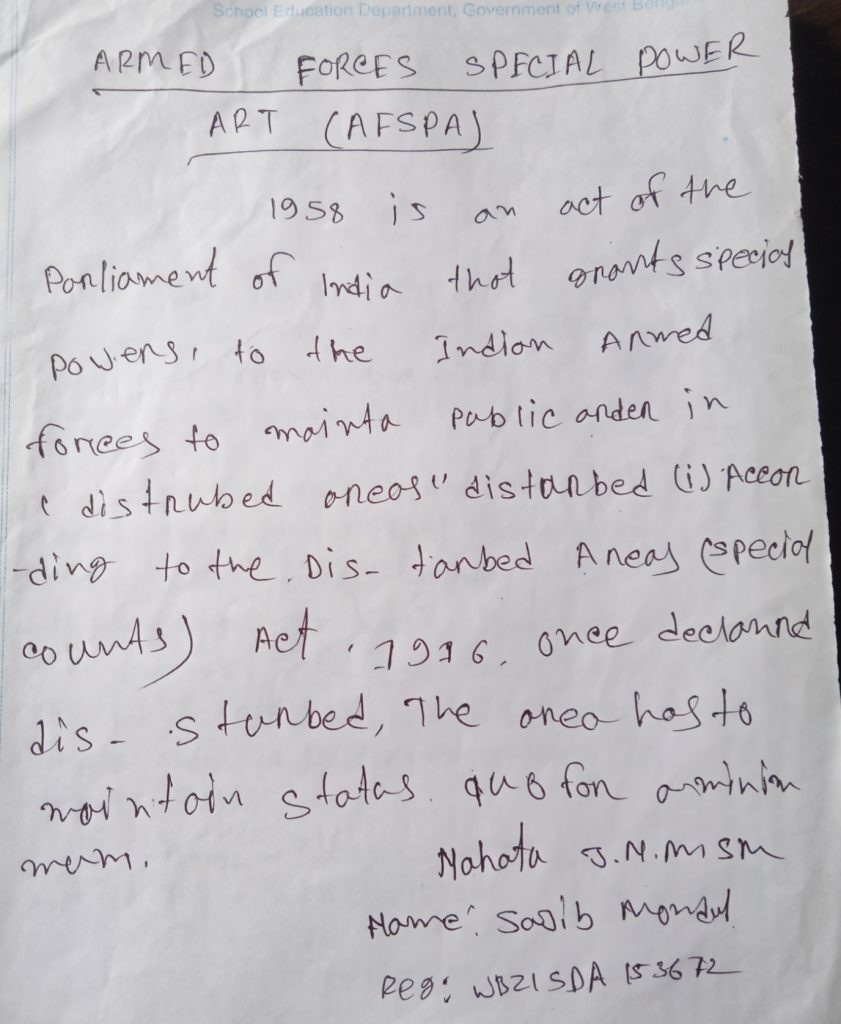 School Education Department, Government of West Bengal
ARMED FORCES SPECIAL POWER
ART (AFSPA)
1958 is an act of the
Parliament of India that grants special
powers, to the Indian Armed
forces to mainta public order in
( distrubed areas" distarbed (i) Accor
-ding to the Dis- tarbed Areas (special
counts) Act, 1976. once declarnd
dis- sturbed, The area has to
maintain status quo for a minim
mum.
Mahata J.N.M SM
Name: Sajib Mondul
Reg: WB21SDA 153672